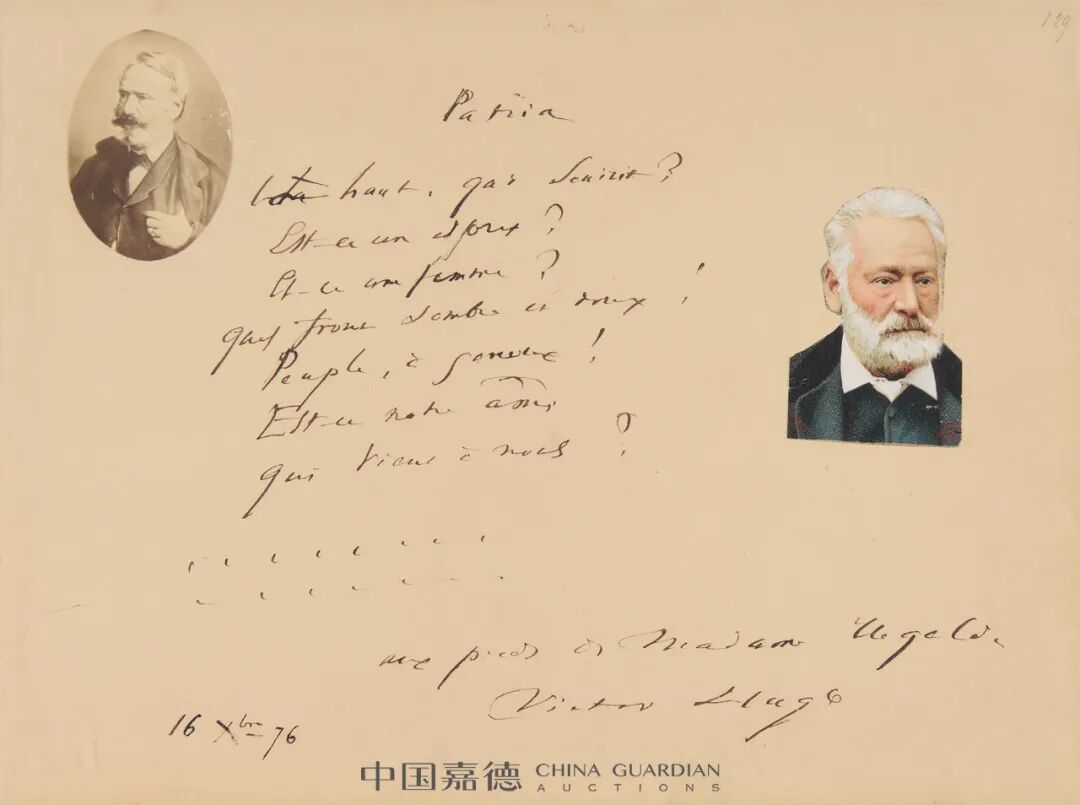 129
Patria
Là haut, qui sourit ?
Est-ce un esprit ?
Est-ce une femme ?
quel front sombre et doux !
Peuple, à genoux !
Est-ce notre âme
qui vient à nous ?
aux pieds de Madame Ugalde
Victor Hugo
16 Xbre 76
中国嘉德 CHINA GUARDIAN
AUCTIONS